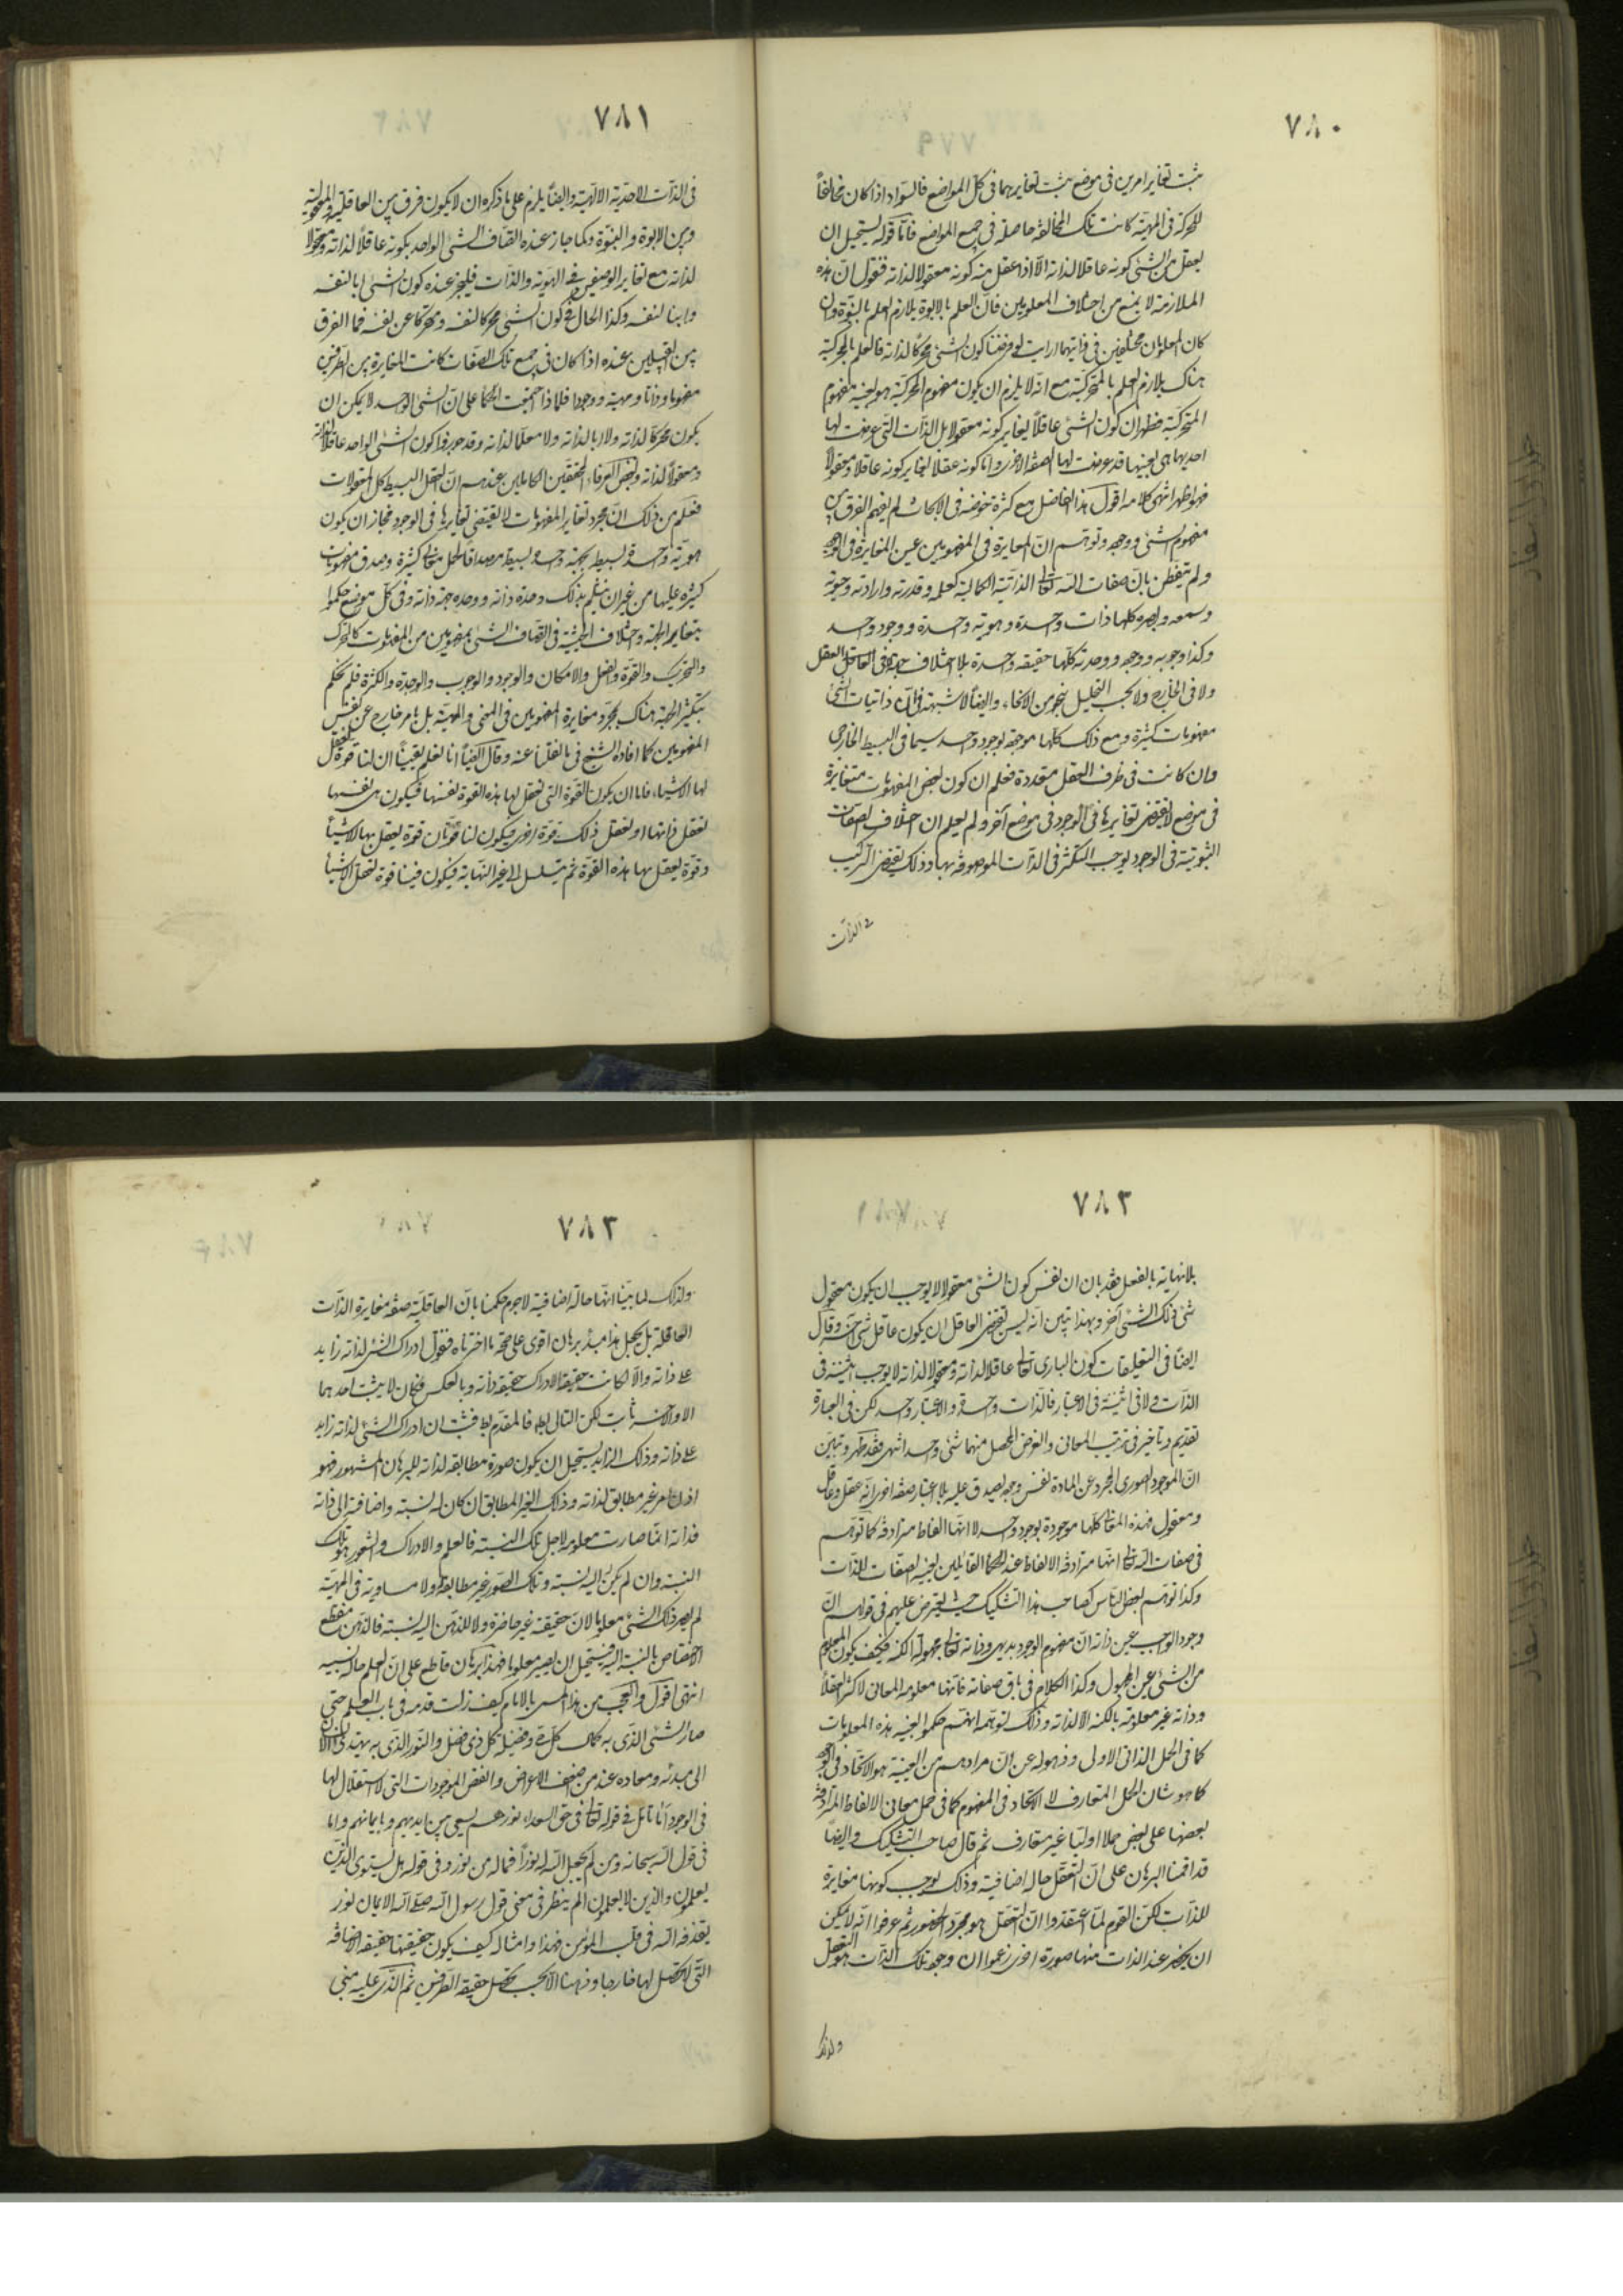 ٧٨٠
ثبت تغاير امرين فى موضع يثبت تغايرهما فى كل المواضع فالسواد اذا كان مخالفاً
للحركة فى المهية كانت تلك المخالفة حاصلة فى جميع المواضع فاما قوله يستحيل ان
يعقل من الشئ كونه عاقلا لذاته الا اذا عقل منه كونه معقولا لذاته فنقول ان هذه
الملازمة لا يمنع من اختلاف المعلومين فان العلم بالابوة يلازم العلم بالبنوة وان
كان المعلومان مختلفين فى ذاتيهما ارايت لو فرضنا كون الشئ محركا لذاته فالعلم بالمحركية
هناك يلازم العلم بالمتحركية مع انه لا يلزم ان يكون مفهوم المحركية هو بعينه مفهوم
المتحركية فظهر ان كون الشئ عاقلاً يغاير كونه معقولا بل الذات التى عرضت لها
احديهما هى بعينها قد عرضت لها الصفة الاخرى واما كونه عقلا يغاير كونه عاقلا ومعقولا
فهو اظهر انتهى كلامه اقول هذا الفاضل مع كثرة خوضه فى الابحاث لم يفهم الفرق بين
مفهوم الشئ ووجوده وتوهم ان المغايرة فى المفهومين عين المغايرة فى الوجود
ولم يتفطن بان صفات الله تعالى الذاتية الكمالية كعلمه وقدرته وارادته وحيوته
وسمعه وبصره كلها ذات واحدة وهوية واحدة ووجود واحد
وكذا وجوبه ووجوده ووحدته كلها حقيقة واحدة بلا اختلاف جهة لا فى العقل
ولا فى الخارج ولا بحسب التحليل بنحو من الانحاء وايضاً لا شبهة فى ان ذاتيات الشئ
مفهومات كثيرة ومع ذلك كلها موجودة بوجود واحد سيما فى البسيط الخارجى
وان كانت فى ظرف العقل متعددة فعلم ان كون بعض المفهومات متغايرة
فى موضع لا يقتضى تغايرها فى الوجود فى موضع آخر ولم يعلم ان اختلاف الصفات
الثبوتية فى الوجود يوجب التكثر فى الذات الموصوفة بها وذلك يقتضى التركيب
فى الذات
٧٨١
فى الذات الاحدية الالهية وايضاً يلزم على ما ذكره ان لا يكون فرق بين العاقلية والمعقولية
وبين الابوة والبنوة وكما جاز عنده اتصاف الشئ الواحد بكونه عاقلاً لذاته ومعقولا
لذاته مع تغاير الوصفين فى الهوية والذات فليجز عنده كون الشئ ابا لنفسه
وابنا لنفسه وكذا الحال فى كون الشئ محركا لنفسه ومتحركا عن نفسه فما الفرق
بين القبيلين عنده اذا كان فى جميع تلك الصفات كانت المغايرة بين الطرفين
مفهوما وذاتا ومهية ووجودا فلماذا اجتمعت الحكماء على ان الشئ الواحد لا يمكن ان
يكون محركا لذاته ولا ابا لذاته ولا معلما لذاته وقد جوزوا كون الشئ الواحد عاقلا لذاته
ومعقولاً لذاته وبعض العرفاء المحققين الكاملين عندهم ان العقل البسيط كل المعقولات
فعلم من ذلك ان مجرد تغاير المفهومات لا يقتضى تغايرها فى الوجود فجاز ان يكون
هوية واحدة بسيطة بجهة واحدة بسيطة مصداقاً لحمل معانى كثيرة وصدق مفهومات
كثيرة عليها من غير ان ينثلم بذلك وحدة ذاته ووحدة جهة ذاته وفى كل موضع حكموا
بتغاير الجهة واختلاف الحيثية فى اتصاف الشئ بمفهومين من المفهومات كالتحرك
والتحريك والقوة والفعل والامكان والوجود والوجوب والوحدة والكثرة فلم يحكم
بتكثر الجهة هناك بمجرد مغايرة المفهومين فى المعنى والمهية بل بامر خارج عن نفس
المفهومين كما افاده الشيخ فى ما نقلنا عنه وقال ايضاً انا نعلم يقيناً ان لنا قوة نعقل
بها الاشياء فاما ان يكون القوة التى نعقل بها هذه القوة نفسها فيكون هى نفسها
تعقل ذاتها او تعقل ذلك قوة اخرى فيكون لنا قوتان قوة نعقل بها الاشياء
وقوة نعقل بها هذه القوة ثم يتسلسل الى غير النهاية فيكون فينا قوة تعقل الاشيا
٧٨٢
بلا نهاية بالفعل فقد بان ان نفس كون الشئ معقولا لا يوجب ان يكون معقول
شئ ذلك الشئ آخر وبهذا تبين انه ليس يقتضى العاقل ان يكون عاقل شئ آخر وقال
ايضاً فى التعليقات كون البارى تعالى عاقلا لذاته ومعقولا لذاته لا يوجب اثنينية فى
الذات ولا فى اثنينية فى الاعتبار فالذات واحدة والاعتبار واحد لكن فى العبارة
تقديم وتاخير فى ترتيب المعانى والغرض المحصل منهما شئ واحد انتهى فقد ظهر وتبين
ان الموجود الصورى المجرد عن المادة نفس وجوده يصدق عليه بلا اعتبار صفة اخرى انه عقل وعاقل
ومعقول فهذه المعانى كلها موجودة بوجود واحد لا انها الفاظ مترادفة كما توهم
فى صفات الله تعالى انها مترادفة الالفاظ عند الحكماء القائلين بعينية الصفات للذات
وكذا توهم بعض الناس كصاحب هذا التشكيك حيث يعترض عليهم فى قولهم ان
وجود الواجب عين ذاته ان مفهوم الوجود بديهى وذاته تعالى مجهولة الكنه فكيف يكون المعلوم
من الشئ عين المجهول وكذا الكلام فى باقى صفاته فانها معلومة المعانى لاكثر العقلاء
وذاته غير معلومة بالكنه الا لذاته وذلك لتوهمه انهم حكموا بعينية هذه المعلومات
كما فى الحمل الذاتى الاولى وذهوله عن ان مرادهم من العينية هو الاتحاد فى الوجود
كما هو شان الحمل المتعارف لا الاتحاد فى المفهوم كما فى حمل معانى الالفاظ المترادفة
بعضها على بعض حملا اوليا غير متعارف ثم قال صاحب التشكيك وايضاً
قد اقمنا البرهان على ان التعقل حالة اضافية وذلك يوجب كونها مغايرة
للذات لكن القوم لما اعتقدوا ان التعقل هو مجرد الحضور ثم عرفوا انه لا يمكن
ان يحضر عند الذات منها صورة اخرى زعموا ان وجود تلك الذات هو التعقل
ولذلك
٧٨٣
ولذلك لما بينا انها حالة اضافية لا جرم حكمنا بان العاقلية صفة مغايرة الذات
العاقلة بل نجعل هذا مبدأ برهان اقوى على صحة ما اخترناه فنقول ادراك الشئ لذاته زايد
على ذاته والا لكانت حقيقة الادراك حقيقة ذاته وبالعكس فكان لا يثبت احدهما
الا والآخر ثابت لكن التالى بط فالمقدم بط فثبت ان ادراك الشئ لذاته زايد
على ذاته وذلك الزايد يستحيل ان يكون صورة مطابقة لذاته للبرهان المشهور فهو
اذن امر غير مطابق لذاته وذلك الغير المطابق ان كان له نسبة واضافة الى ذاته
فذاته انما صارت معلومة لاجل تلك النسبة فالعلم والادراك والشعور هو تلك
النسبة وان لم يكن اليه نسبة وتلك الصور غير مطابقة ولا مساوية فى المهية
لم يصر ذلك الشئ معلوما لان حقيقته غير حاضرة ولا للذهن اليه نسبة فالذهن منقطع
الاختصاص بالنسبة اليه فيستحيل ان يصير معلوما فهذا برهان قاطع على ان العلم حالة نسبية
انتهى اقول والعجب من هذا المسمى بالامام كيف زلت قدمه فى باب العلم حتى
صار الشئ الذى به كمال كل حى وفضيلة كل ذى فضل والنور الذى به يهتدى الانسان
الى مبدئه ومعاده عنده من اضعف الاعراض وانقص الموجودات التى لا استقلال لها
فى الوجود اما تامل فى قوله تعالى فى حق السعداء نورهم يسعى بين ايديهم وبايمانهم واما
فى قول الله سبحانه ومن لم يجعل الله له نوراً فما له من نور وفى قوله هل يستوى الذين
يعلمون والذين لا يعلمون الم ينظر فى معنى قول رسول الله صلى الله الايمان نور
يقذفه الله فى قلب المؤمن فهذا وامثاله كيف يكون حقيقتها حقيقة الاضافة
التى لا تحصل لها خارجا وذهنا الا بحسب تحصل حقيقة الطرفين ثم الذى عليه مبنى